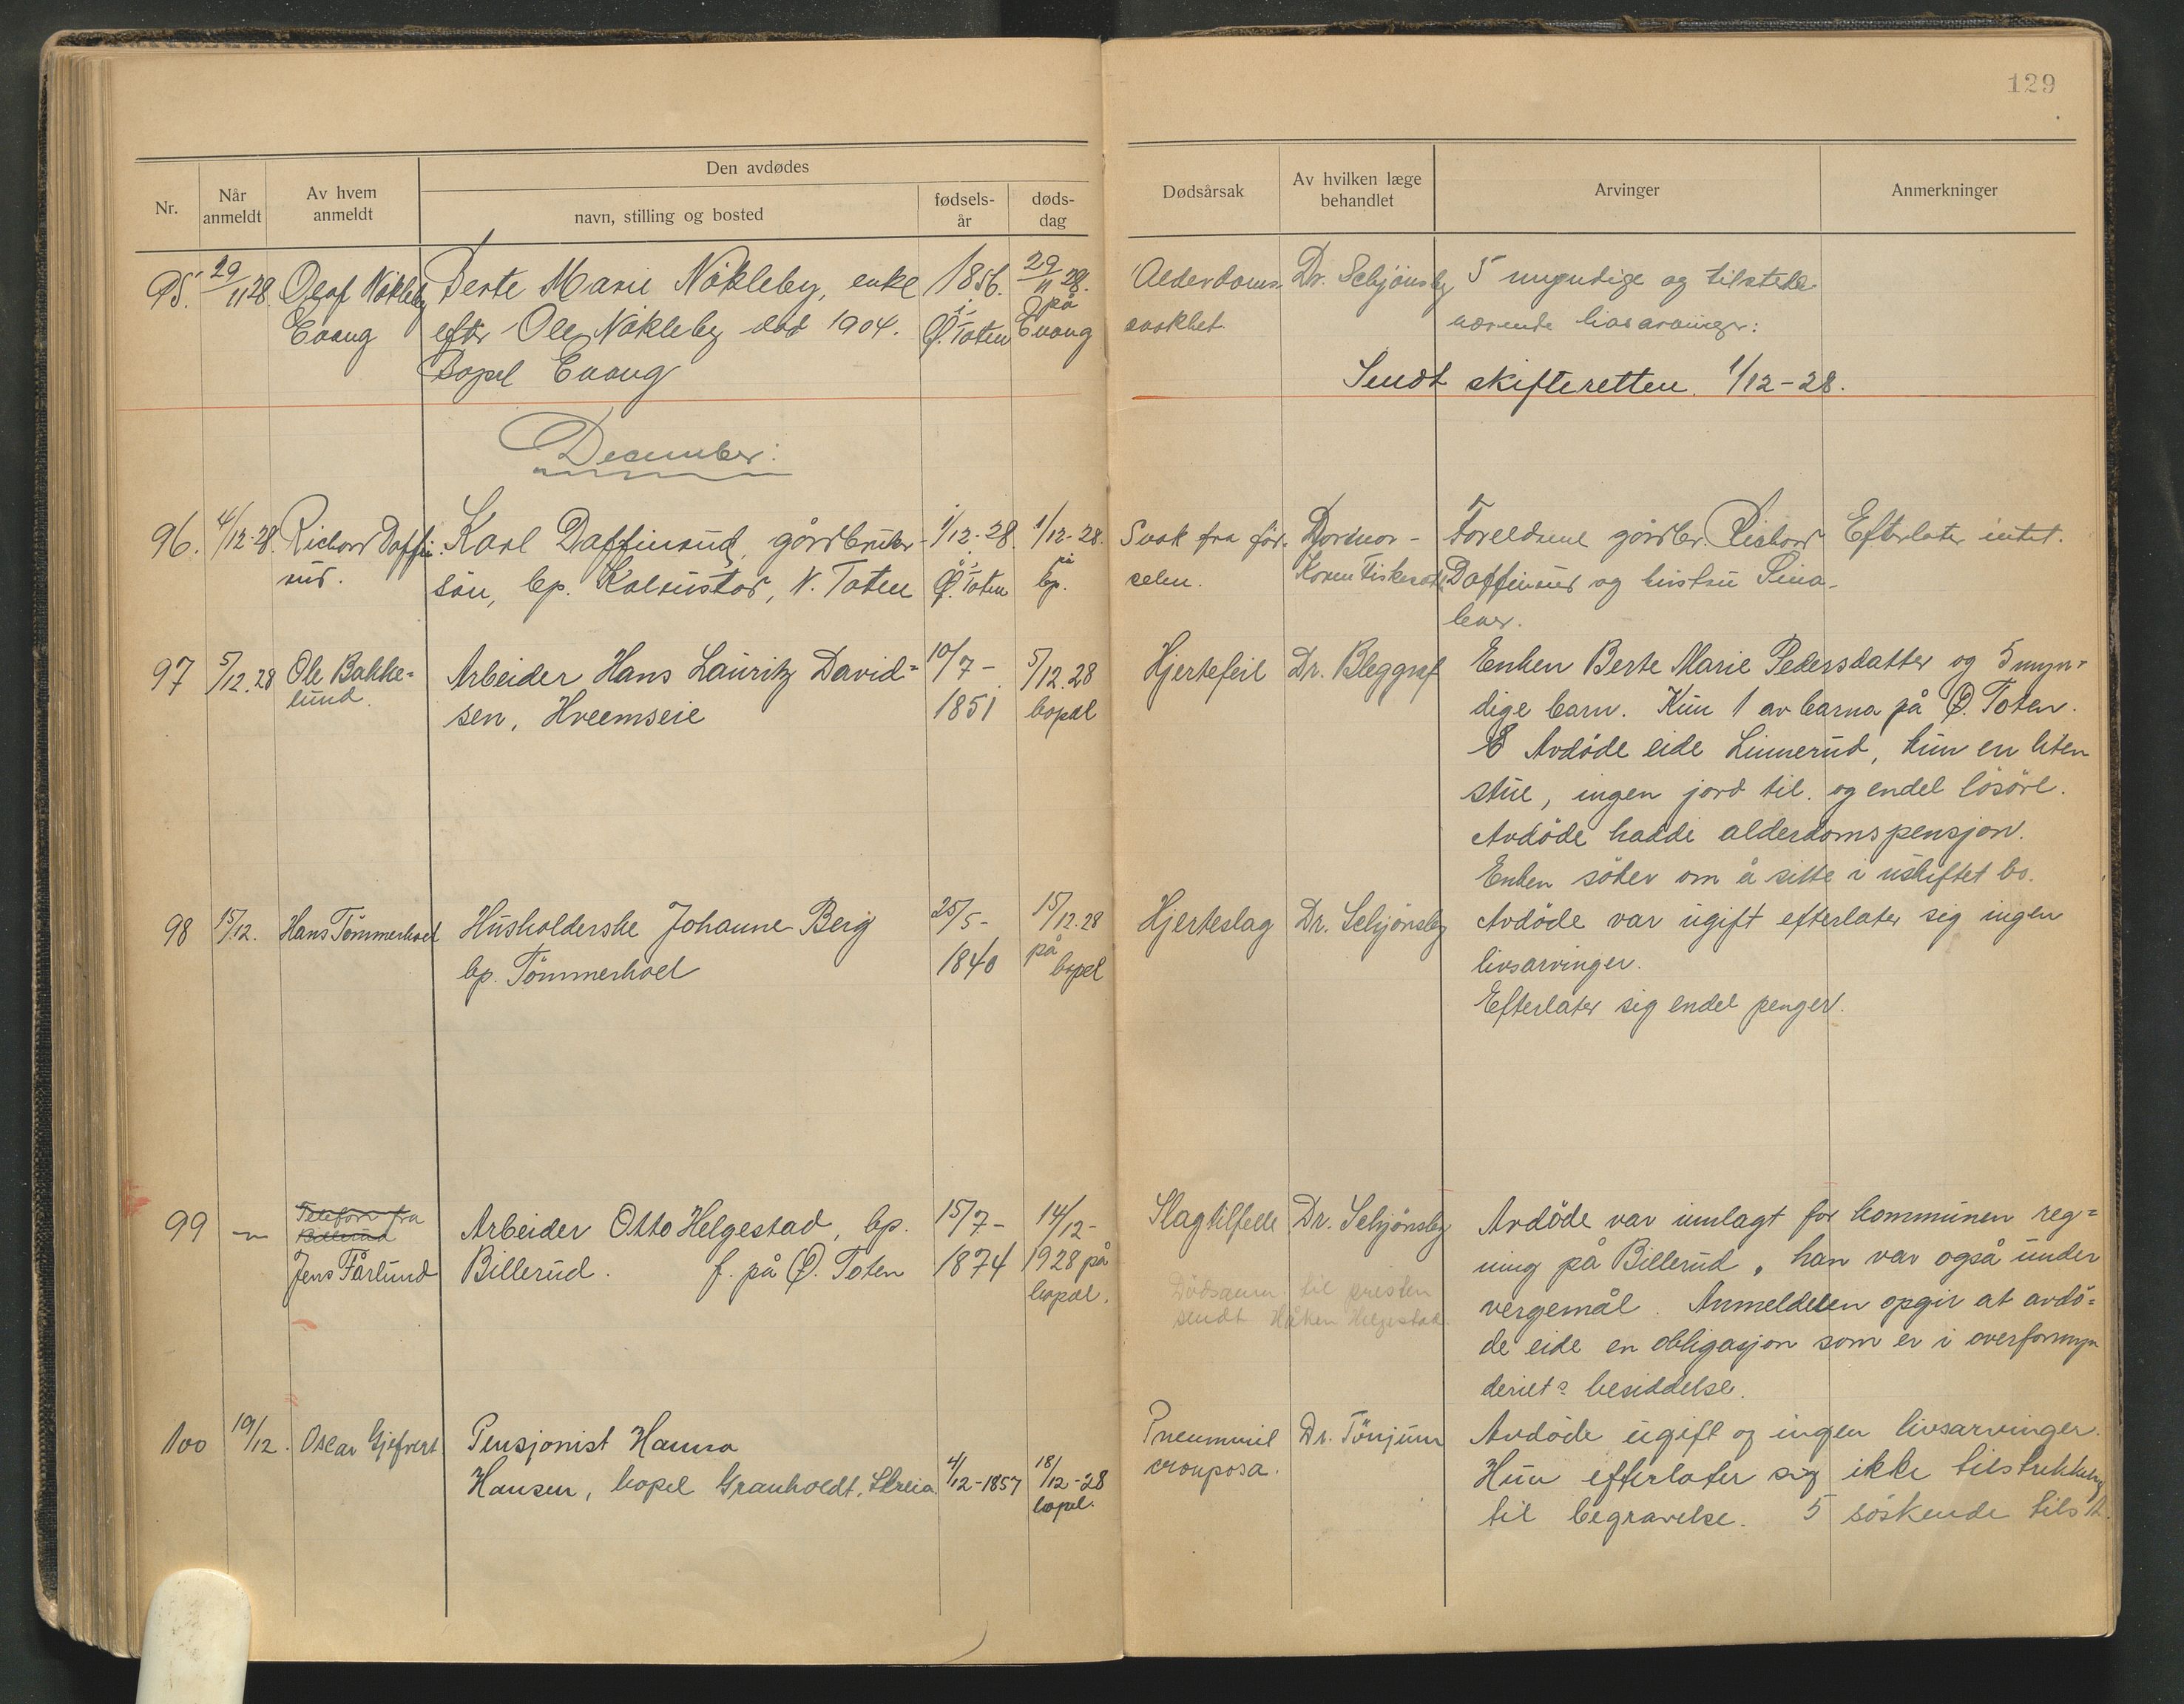 129
Den avdødes
Nr.
Når anmeldt
Av hvem anmeldt
navn, stilling og bosted
fødsels-år
døds-dag
Dødsårsak
Av hvilken læge behandlet
Arvinger
Anmerkninger
95. 29/11 28. Olaf Nökleby Berte Marie Nökleby, enke 1856. 29/11 28. Alderdoms- Dr. Schjönsby 5 myndige og tilstede
Evang efter Ole Nökleby död 1904. i Ø. Toten på Evang svakhet. værende livsarvinger:
Bopel Evang
Sendt skifteretten. 1/12-28.
December:
96. 4/12-28. Richard Daffin- Karl Daffinrud, gårdbruker- 1/12-28. 1/12-28. Svak fra föd- Jordmor- Foreldrene gårdbr. Richard Efterlater intet.
rud. sön, bp. Kolnustad, V. Toten i Ø. Toten på bp. selen. Koren Fiskerud Daffinrud og hustru Sina
lever.
97 5/12.28 Ole Bakke- Arbeider Hans Lauritz David= 10/7- 5/12.28 Hjertefeil Dr. Bleggraf Enken Berte Marie Pedersdatter og 5 myn-
lund. sen, Hveemseie 1851 bopæl dige barn. Kun 1 av barna på Ø. Toten.
Avdöde eide Linnerud, kun en liten
stue, ingen jord til. og endel lösöre.
Avdöde hadde alderdomspensjon.
Enken söker om å sitte i uskiftet bo.
98 15/12. Hans Tömmerhoel Husholderske Johanne Berg 25/5- 15/12.28 Hjerteslag Dr. Schjönsby Avdöde var ugift efterlater sig ingen
bp. Tömmerhoel 1840 på bopel livsarvinger.
Efterlater sig endel penger.
99 -"- Telefon fra Billerud
Arbeider Otto Helgestad, bp. 15/7- 14/12- Slagtilfelle Dr. Schjönsby Avdöde var innlagt for kommunen reg=
Jens Fårlund Billerud. f. på Ø. Toten 1874 1928 på bopæl. ning på Billerud, han var også under
Dödsanm. til presten
sendt Håken Helgestad.
vergemål. Anmelderen opgir at avdö=
de eide en obligasjon som er i overformyn
deriets besiddelse.
100 19/12. Oscar Gjefvert Pensjonist Hanna Pneumonie Dr. Tönjum Avdöde ugift og ingen livsarvinger.
Hansen, bopel Granholdt, Skreia 4/12-1857 18/12-28 bopel. crouposa. Hun efterlater sig ikke tilstrekkelig
til begravelse. 5 söskende tilst.